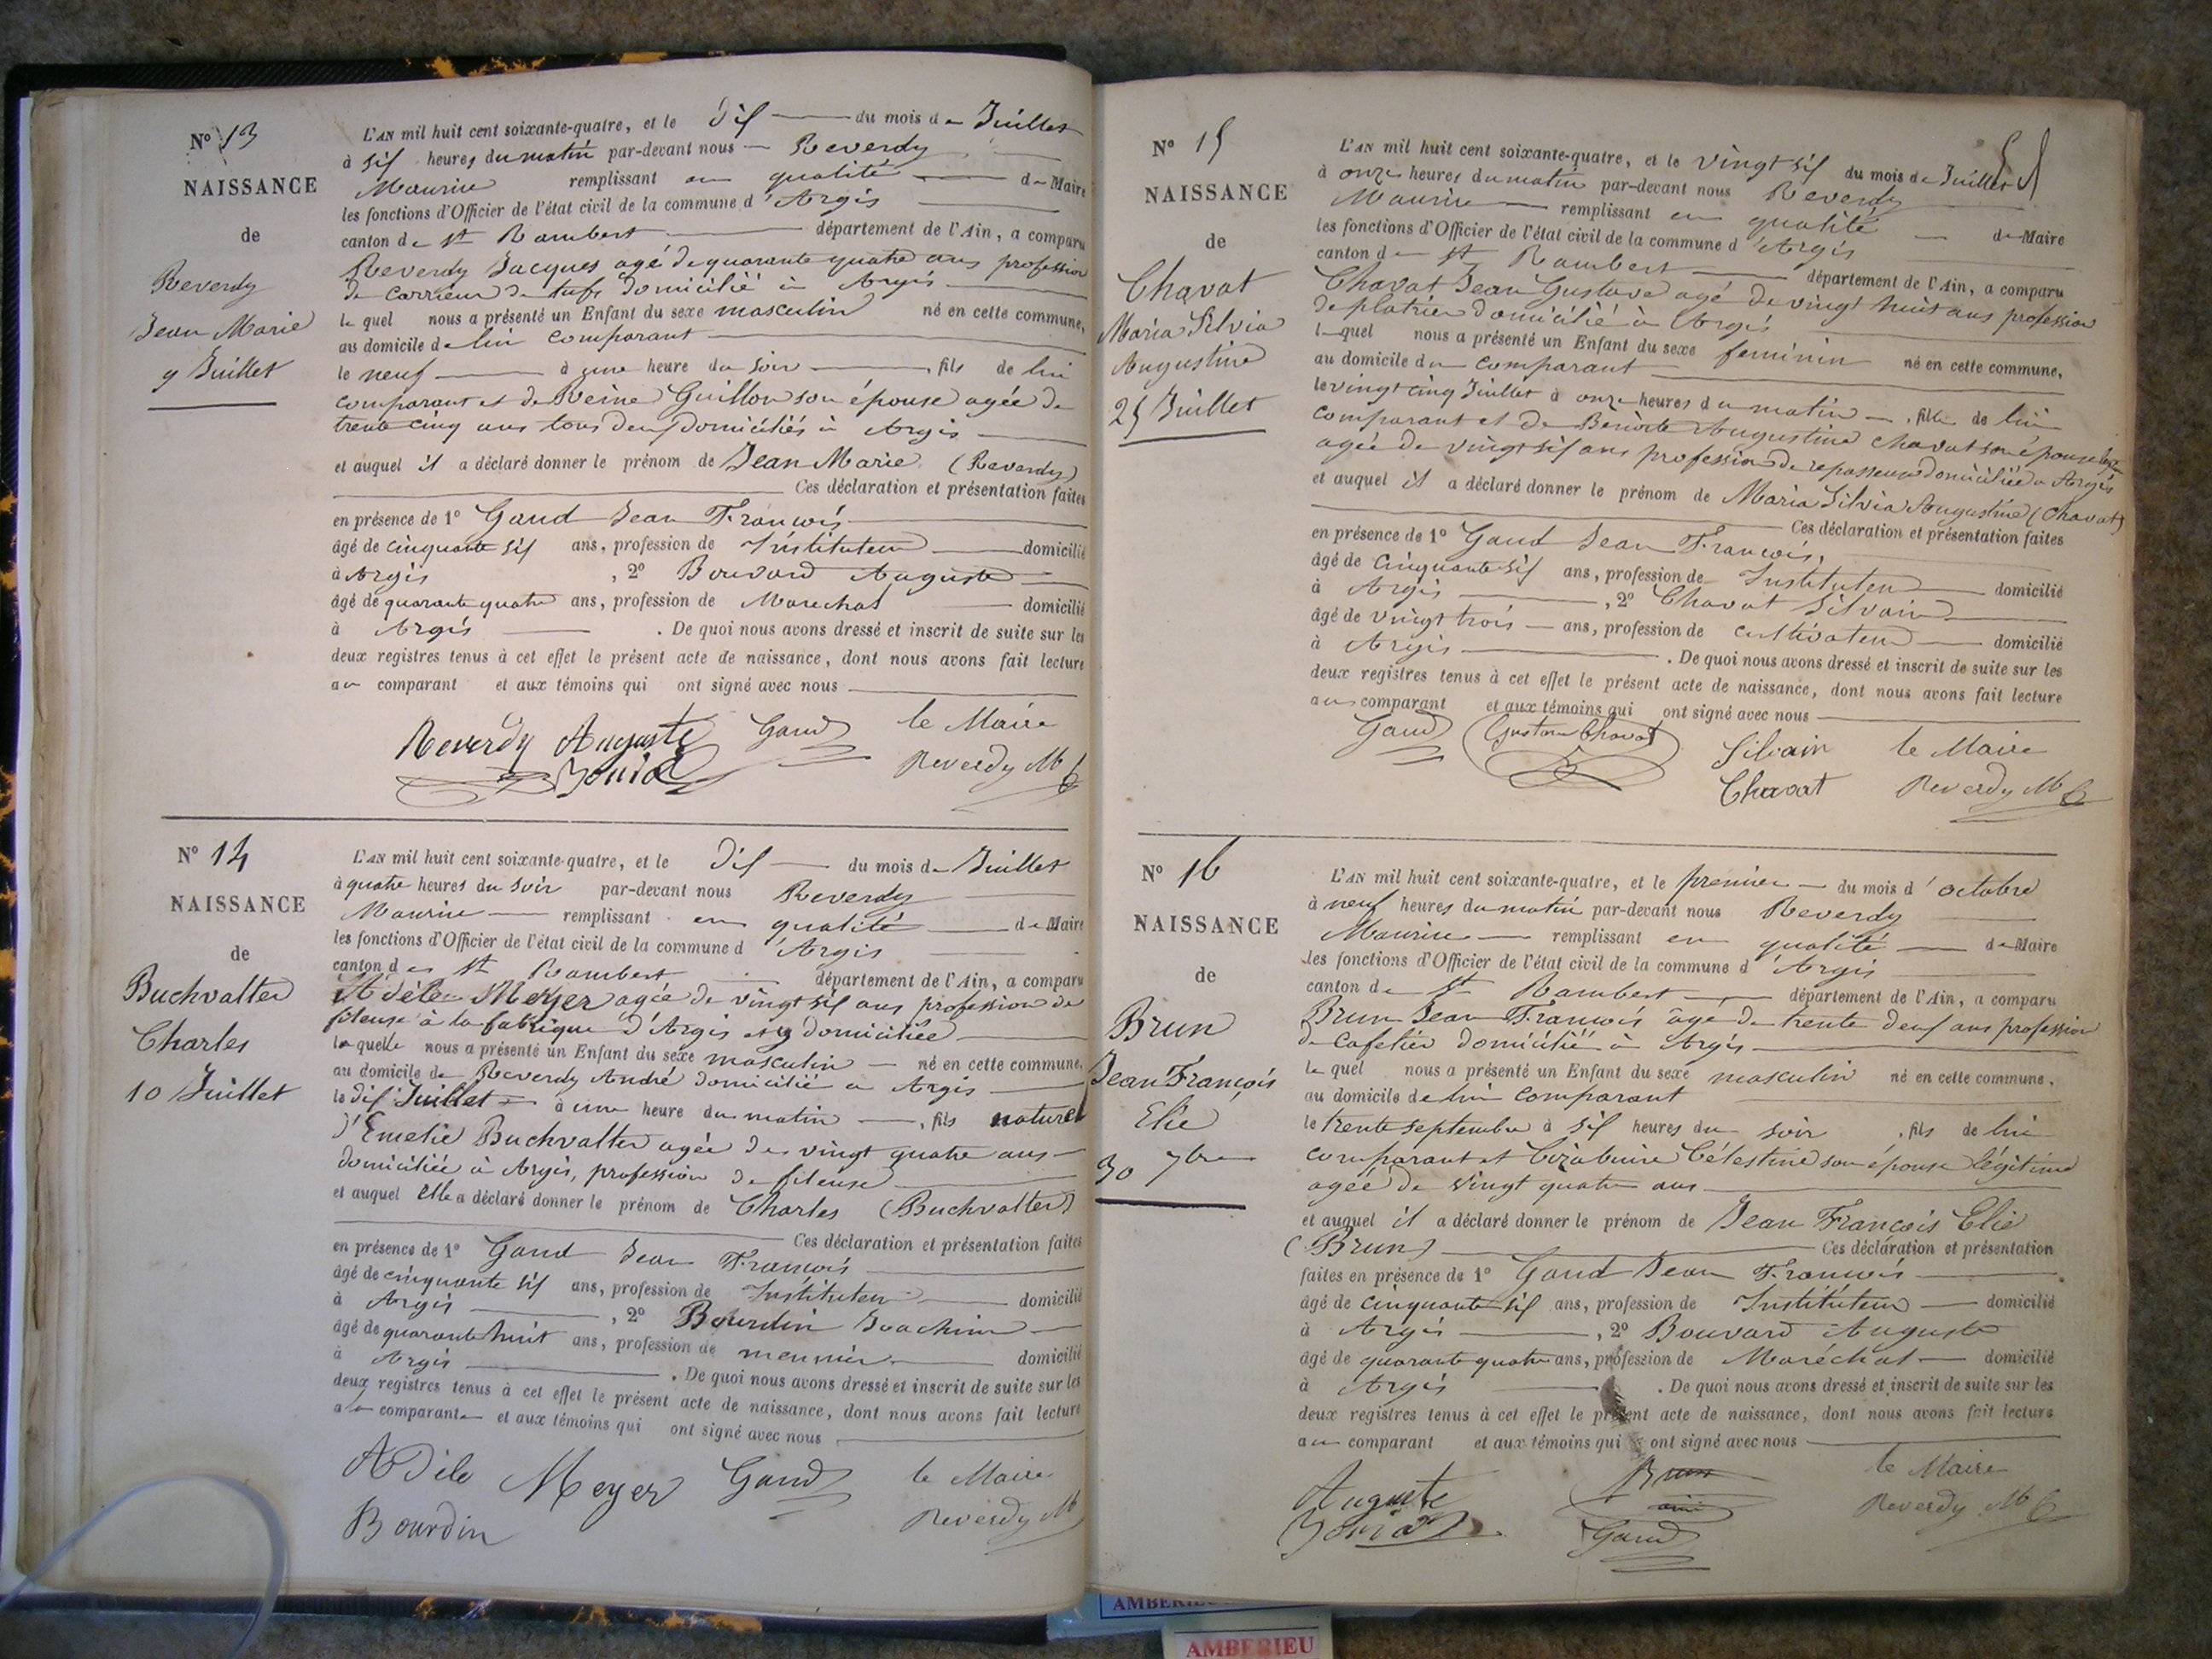 N° 13
NAISSANCE
de
Reverdy
Jean Marie
9 Juillet
L'AN mil huit cent soixante-quatre, et le dix du mois de Juillet
à six heures du matin par-devant nous Reverdy
Maurice remplissant en qualité de Maire
les fonctions d'Officier de l'état civil de la commune d'Argis
canton de St Rambert département de l'Ain, a comparu
Reverdy Jacques agé de quarante quatre ans profession
de carrieur de tufs domicilié à Argis
lequel nous a présenté un Enfant du sexe masculin né en cette commune,
au domicile de lui comparant
le neuf à une heure du soir, fils de lui
comparant et de Reine Guillon son épouse agée de
trente cinq ans tous deux domiciliés à Argis
et auquel il a déclaré donner le prénom de Jean Marie (Reverdy)
Ces déclaration et présentation faites
en présence de 1° Gaud Jean François
âgé de cinquante six ans, profession de Instituteur domicilié
à Argis, 2° Bouvard Auguste
âgé de quarante quatre ans, profession de Marechal domicilié
à Argis. De quoi nous avons dressé et inscrit de suite sur les
deux registres tenus à cet effet le présent acte de naissance, dont nous avons fait lecture
au comparant et aux témoins qui ont signé avec nous
Reverdy Auguste Gaud le Maire
Reverdy M
N° 14
NAISSANCE
de
Buchvalter
Charles
10 Juillet
L'AN mil huit cent soixante-quatre, et le dix du mois de Juillet
à quatre heures du soir par-devant nous Reverdy
Maurice remplissant en qualité de Maire
les fonctions d'Officier de l'état civil de la commune d'Argis
canton de St Rambert département de l'Ain, a comparu
Adèle Meyer agée de vingt six ans profession de
fileuse à la fabrique d'Argis et y domiciliée
laquelle nous a présenté un Enfant du sexe masculin né en cette commune,
au domicile de Reverdy André domicilié à Argis
le dix Juillet à une heure du matin, fils naturel
d'Emelie Buchvalter agée de vingt quatre ans
domiciliée à Argis, profession de fileuse
et auquel Elle a déclaré donner le prénom de Charles (Buchvalter)
Ces déclaration et présentation faites
en présence de 1° Gaud Jean François
âgé de cinquante six ans, profession de Instituteur domicilié
à Argis, 2° Bourdin Joachim
âgé de quarante huit ans, profession de meunier domicilié
à Argis. De quoi nous avons dressé et inscrit de suite sur les
deux registres tenus à cet effet le présent acte de naissance, dont nous avons fait lecture
a la comparante et aux témoins qui ont signé avec nous
Adele Meyer Gaud le Maire
Bourdin Reverdy M
N° 15
NAISSANCE
de
Chavat
Maria Silvia
Augustine
25 Juillet
L'AN mil huit cent soixante-quatre, et le vingt six du mois de Juillet
à onze heures du matin par-devant nous Reverdy
Maurice remplissant en qualité de Maire
les fonctions d'Officier de l'état civil de la commune d'Argis
canton de St Rambert département de l'Ain, a comparu
Chavat Jean Gustave agé de vingt huit ans profession
de platrier domicilié à Argis
lequel nous a présenté un Enfant du sexe feminin né en cette commune,
au domicile du comparant
le vingt cinq Juillet à onze heures du matin, fille de lui
comparant et de Benoite Augustine Chavat son épouse
agée de vingt six ans profession de repasseuse domiciliée à Argis
et auquel il a déclaré donner le prénom de Maria Silvia Augustine (Chavat)
Ces déclaration et présentation faites
en présence de 1° Gaud Jean François,
âgé de cinquante six ans, profession de Instituteur domicilié
à Argis, 2° Chavat Silvain
âgé de vingt trois ans, profession de cultivateur domicilié
à Argis. De quoi nous avons dressé et inscrit de suite sur les
deux registres tenus à cet effet le présent acte de naissance, dont nous avons fait lecture
au comparant et aux témoins qui ont signé avec nous
Gaud Gustave Chavat Silvain le Maire
Chavat Reverdy M
N° 16
NAISSANCE
de
Brun
Jean François
Elie
30 7bre
L'AN mil huit cent soixante-quatre, et le premier du mois d'octobre
à neuf heures du matin par-devant nous Reverdy
Maurice remplissant en qualité de Maire
les fonctions d'Officier de l'état civil de la commune d'Argis
canton de St Rambert département de l'Ain, a comparu
Brun Jean François âgé de trente deux ans profession
de cafetier domicilié à Argis
lequel nous a présenté un Enfant du sexe masculin né en cette commune,
au domicile de lui comparant
le trente septembre à six heures du soir, fils de lui
comparant et Célestine son épouse légitime
agée de vingt quatre ans
et auquel il a déclaré donner le prénom de Jean François Elie
(Brun) Ces déclaration et présentation
faites en présence de 1° Gaud Jean François
âgé de cinquante six ans, profession de Instituteur domicilié
à Argis, 2° Bouvard Auguste
âgé de quarante quatre ans, profession de Maréchal domicilié
à Argis. De quoi nous avons dressé et inscrit de suite sur les
deux registres tenus à cet effet le présent acte de naissance, dont nous avons fait lecture
au comparant et aux témoins qui ont signé avec nous
Auguste Brun le Maire
Gaud Reverdy M
AMBERIEU